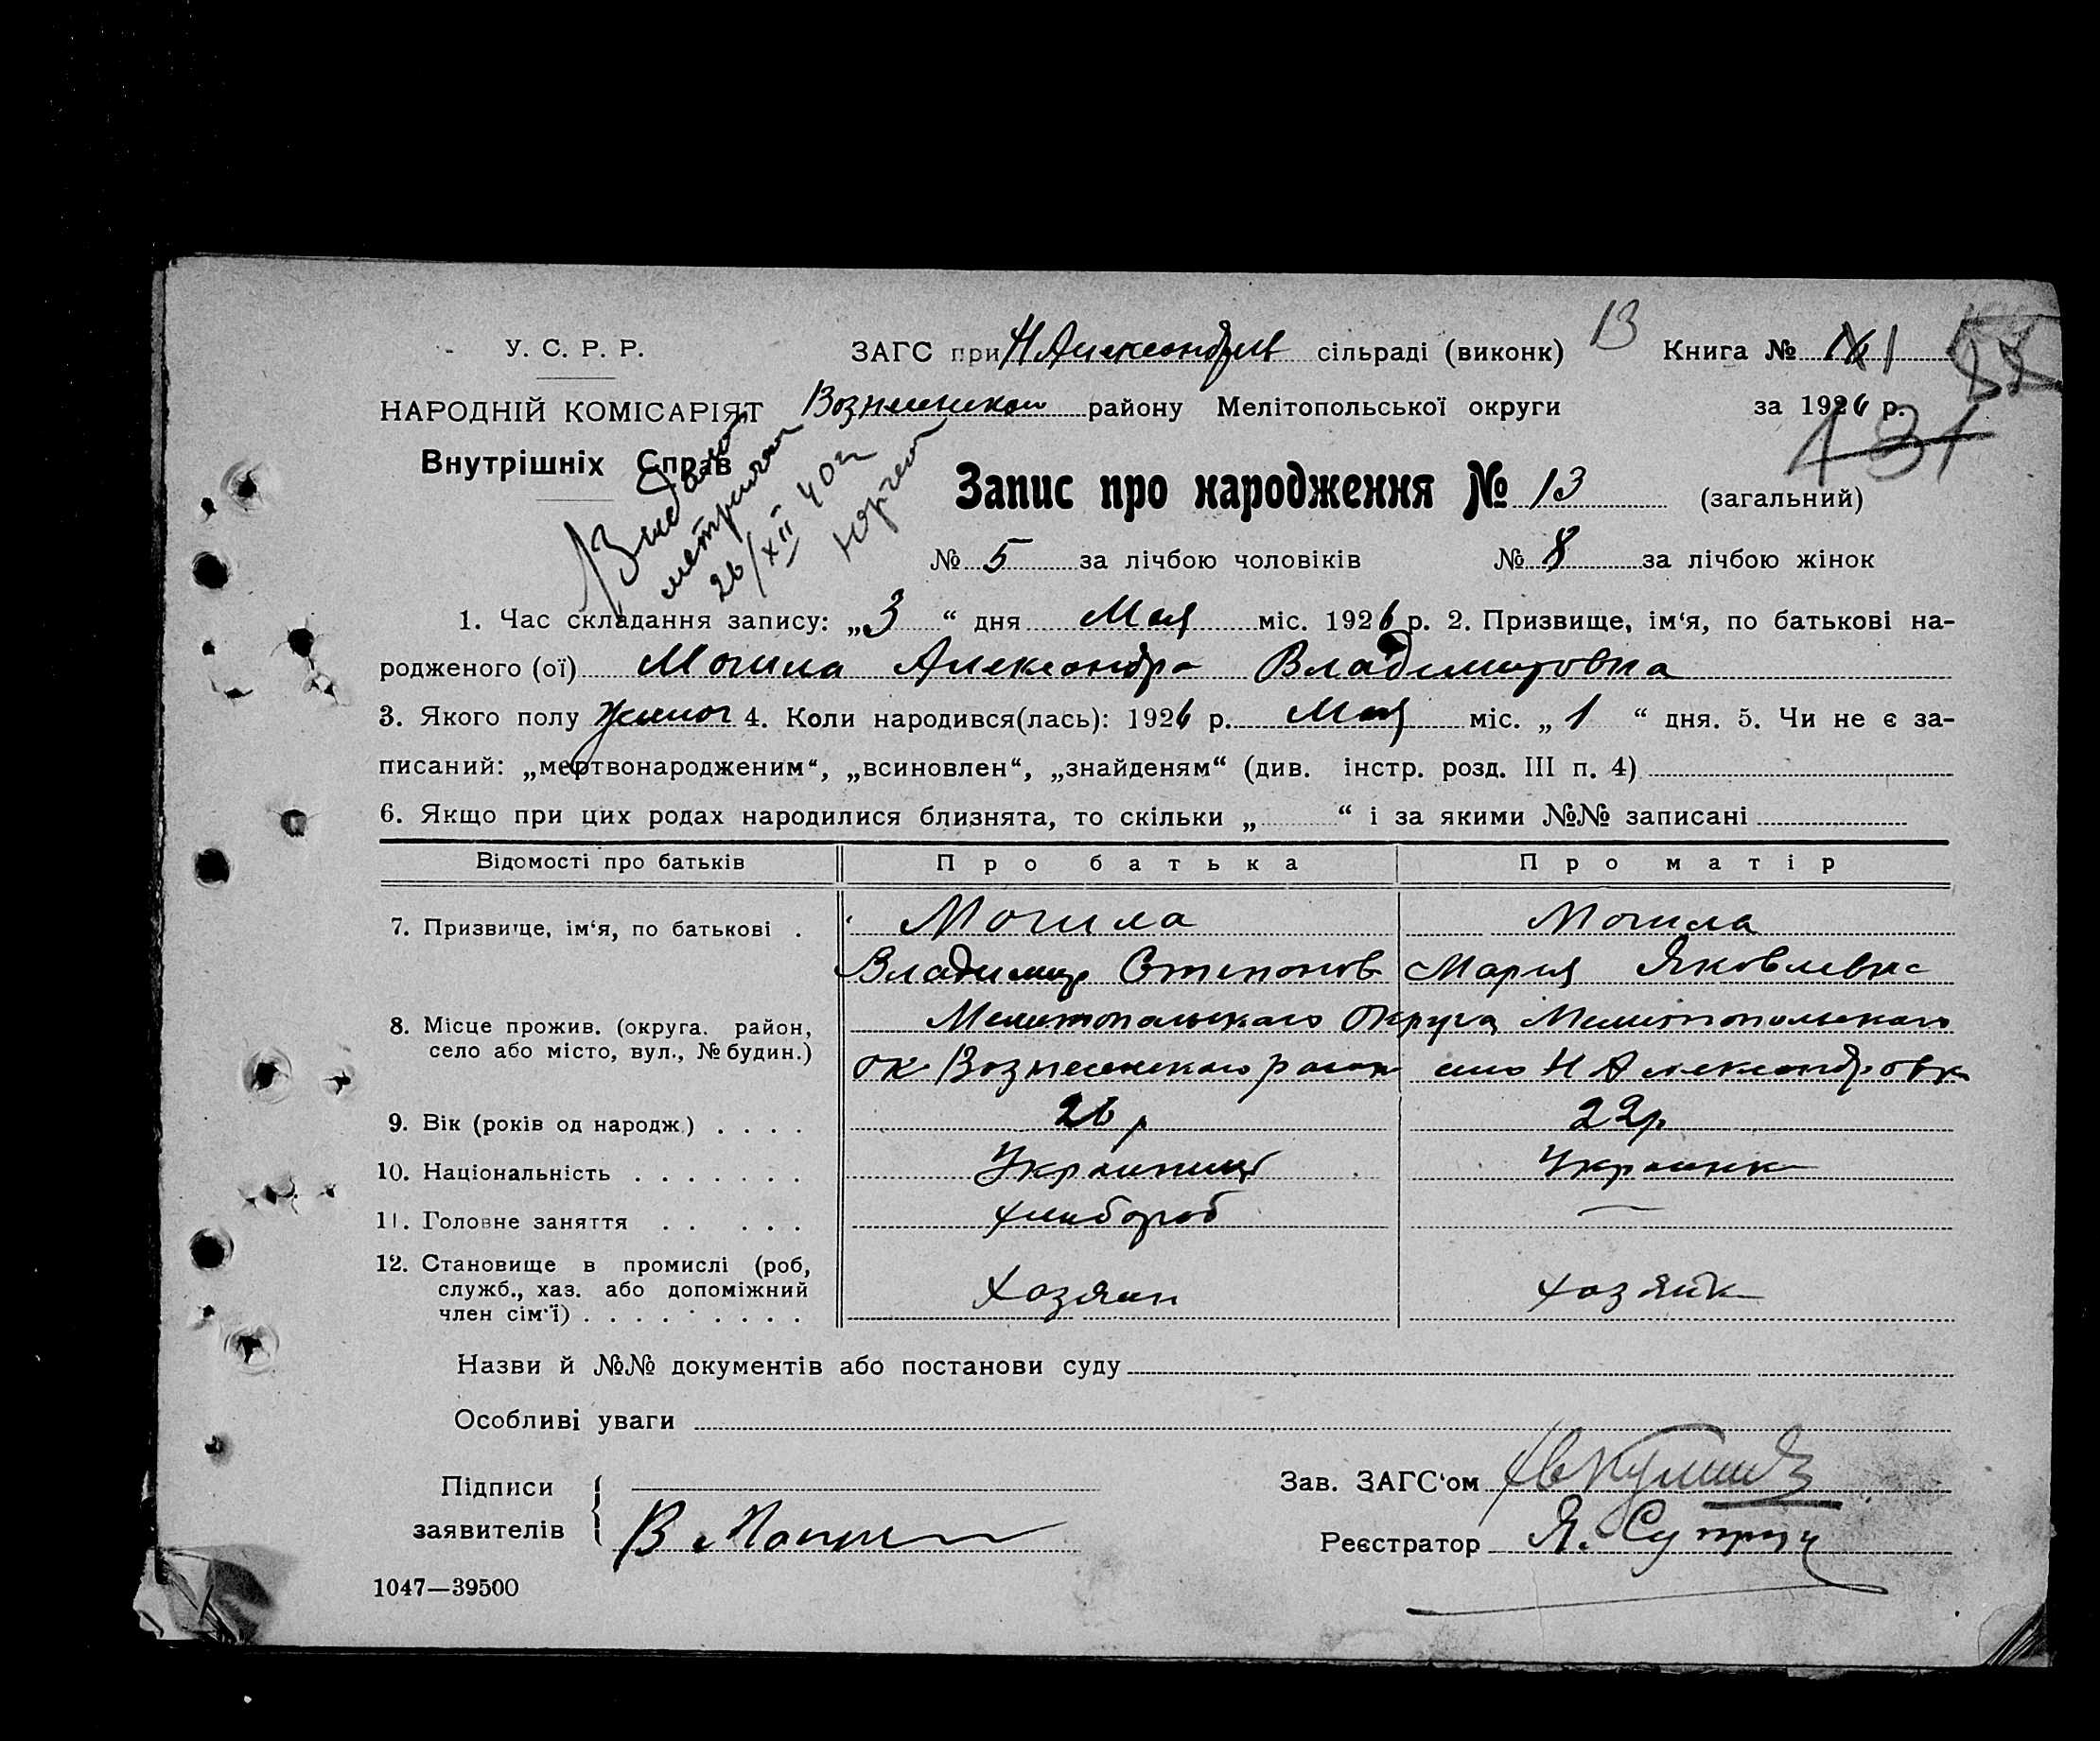 У. С. Р. Р.
НАРОДНІЙ КОМІСАРІЯТ
Внутрішніх Справ
ЗАГС при Н Александрів сільраді (виконк) 13 Книга № 1
Вознесенском району Мелітопольської округи за 1926 р.
131
Запис про народження № 13 (загальний)
Видана
метрична
26/XII 40 г
№ 5 за лічбою чоловіків № 8 за лічбою жінок
1. Час складання запису: „3“ дня Мая міс. 1926 р. 2. Призвище, ім‘я, по батькові на-
родженого (ої) Могила Александра Владимировна
3. Якого полу женског 4. Коли народився(лась): 1926 р. Мая міс. „1“ дня. 5. Чи не є за-
писаний: „мертвонародженим“, „всиновлен“, „знайденям“ (див. інстр. розд. III п. 4)
6. Якщо при цих родах народилися близнята, то скільки „ “ і за якими №№ записані
Відомості про батьків Про батька Про матір
7. Призвище, ім‘я, по батькові . Могила Могила
Владимир Степанов Мария Яковлевна
8. Місце прожив. (округа. район, Мелитопольскаго Округа Мелитопольскаго
село або місто, вул., № будин.) ок Вознесенскаго район село Н Александровка
9. Вік (років од народж.) . . . . 26 р 22 р
10. Національність . . . . . . . Украинец Украинка
11. Головне заняття . . . . . хлебороб —
12. Становище в промислі (роб,
служб., хаз. або допоміжний Хозяин хозяйка
член сім‘ї) . . . . . . . .
Назви й №№ документів або постанови суду
Особливі уваги
Підписи
заявителів В Могила
Зав. ЗАГС‘ом
Реєстратор Я. Супрун
1047—39500